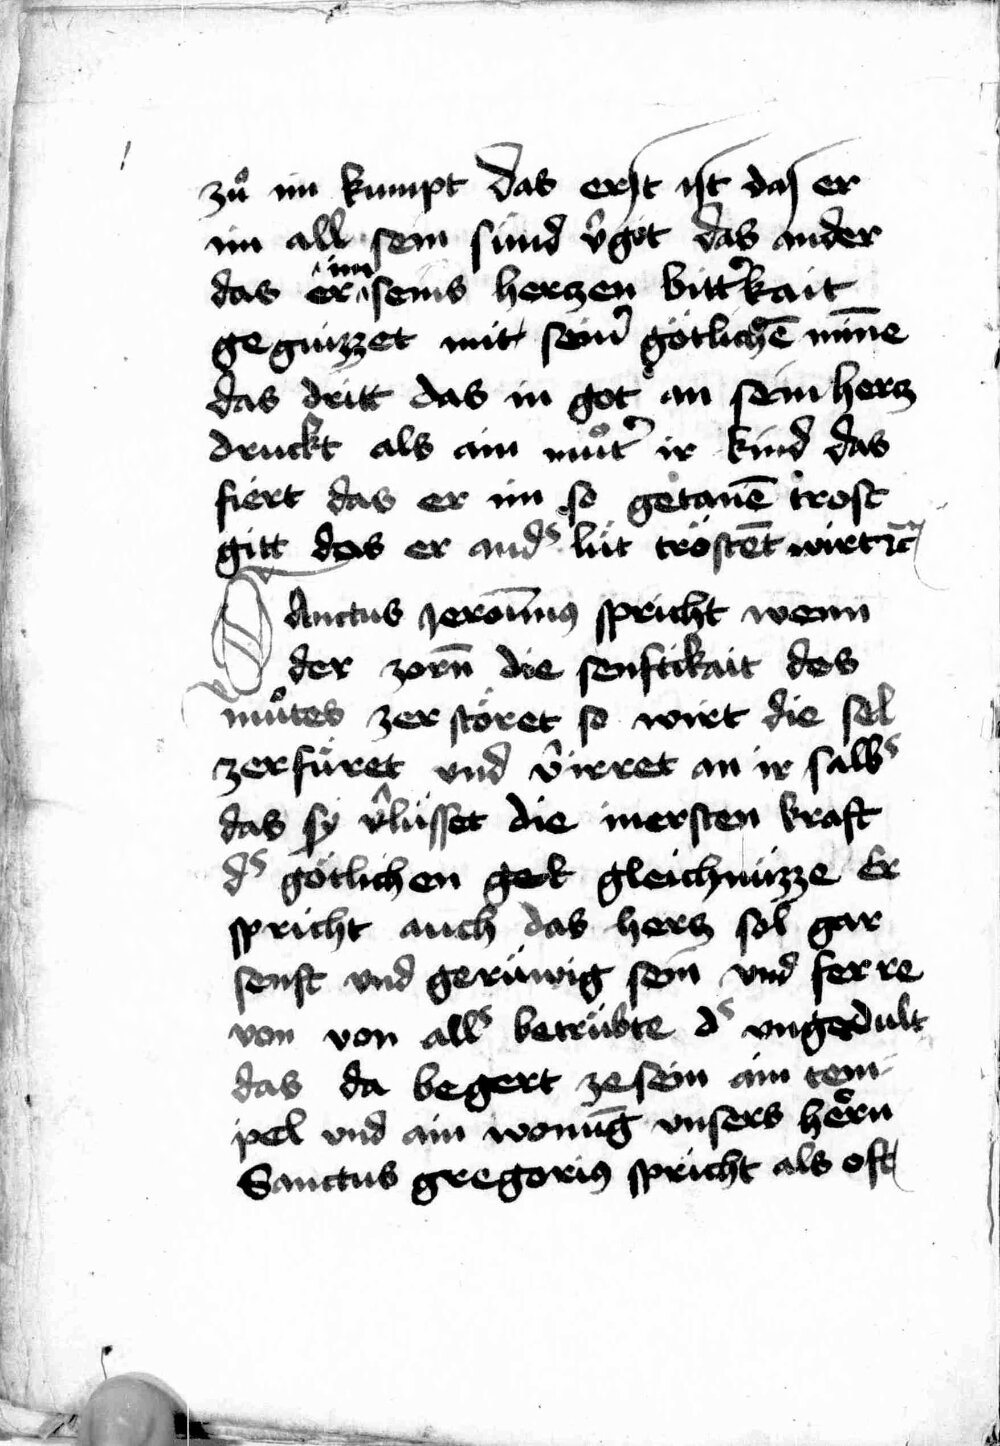 zuͦ im kumpt das erst ist das er
im all sein sünd v̂git das ander
das er im seins herczen bitt̓kait
geguizzet mit sein̓ götlichē min̄e
das dritt das in got an sein hercz
druckt als ain muͦt̓ ir kind das
fiert das er im so getanē trost
gitt das er andˢ lüt tröstēt wirt ꝛc̄
Sanctus Jeronim̄ꝰ spricht wenn
der zorn̄ die senftikait des
muͦtes zerstöret so wirt die sel
zerfüret vnd v̂irret an ir salbˢ
das sy v̂lüsset die inersten kraft
dˢ götlichen gock gleichnüzze Er
spricht auch das hercz sol gar
senft vnd gerüwig sein vnd ferre
von von allˢ betrübte dˢ vngedult
das da begert ze sein ain tem-
pel vnd ain wonūg vnsers hern̄
Sanctus gregoriꝰ spricht als oft